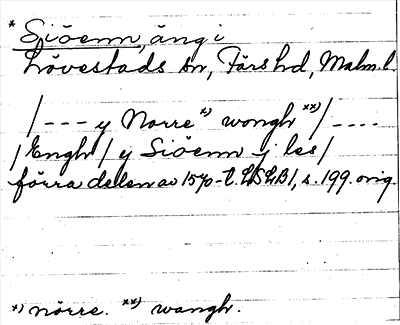 * Siöenn, äng i
Lövestads sn, Färs hd, Malm. l.
/ - - - y Norre *) wongh **) / - - - -
/ Engh / y Siöenn j les /
förra delen av 1570-t. LSLB1, s. 199. orig.
*) nörre. **) wangh.